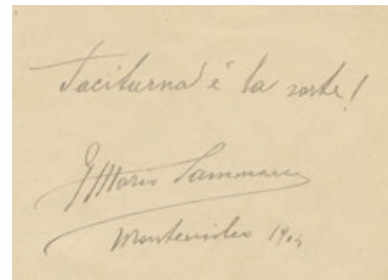 Taciturna è la sorte!
G Mario Sammarco
Montevideo 1904